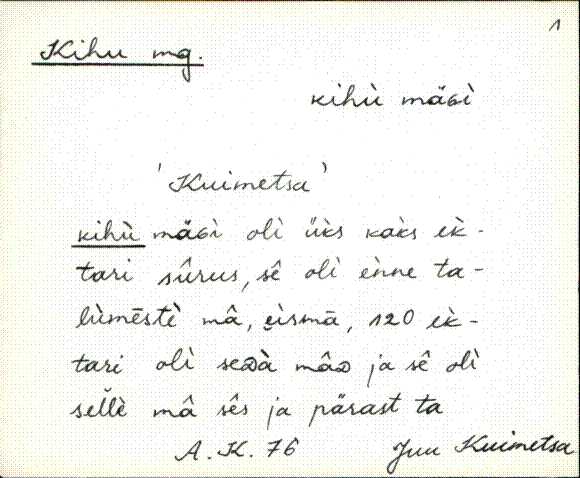 1
Kihu mg.
kihù mäɢì
'Kuimetsa'
kihù mäɢì olì ǜks kaks èk-
tari sûrus, sê olì ènne ta-
lùmēstè mâ, èìsmā, 120 èk-
tari olì seᴅà mâᴅ ja sê olì
sellè mâ sês ja pärast ta
A. K. 76 Juu Kuimetsa